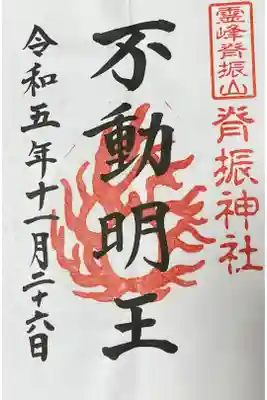 霊峰脊振山
脊振神社
不動明王
令和五年十一月二十六日